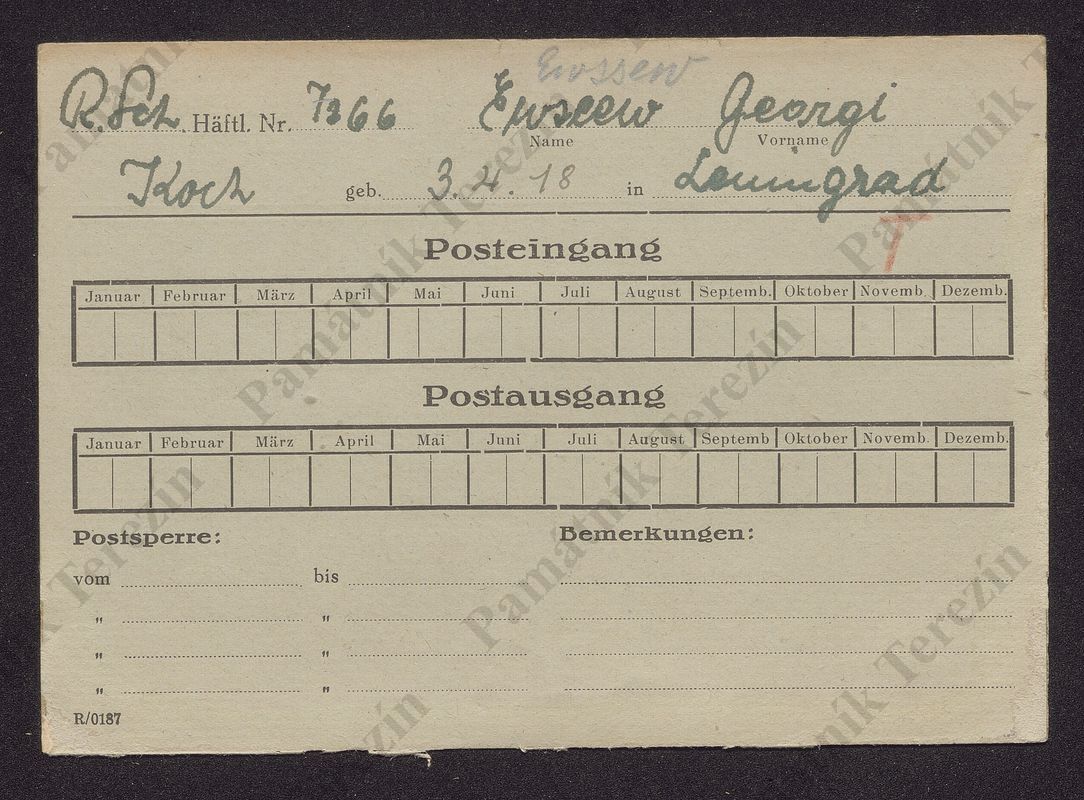 Ewssew
R.Sch. Häftl. Nr. 7366 Ewseew Georgi
Name Vorname
Koch geb. 3.4.18 in Leningrad
Posteingang
Januar Februar März April Mai Juni Juli August Septemb. Oktober Novemb. Dezemb.
Postausgang
Januar Februar März April Mai Juni Juli August Septemb Oktober Novemb. Dezemb.
Postsperre: Bemerkungen:
vom bis
" "
" "
" "
R/0187
Památník Terezín